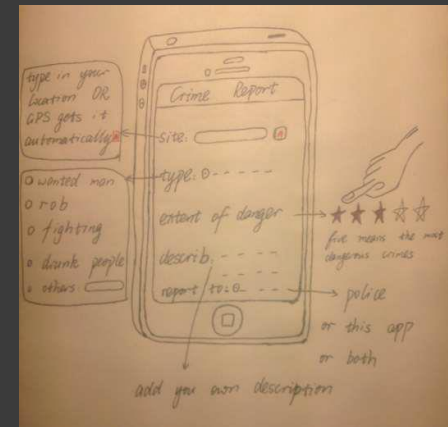 type in your
location OR
GPS gets it
automatically
Crime Report
site:
type:
o wanted man
o rob
o fighting
o drunk people
o others:
extent of danger
five means the most
dangerous crimes
describ:
report to:
police
or this app
or both
add you own description